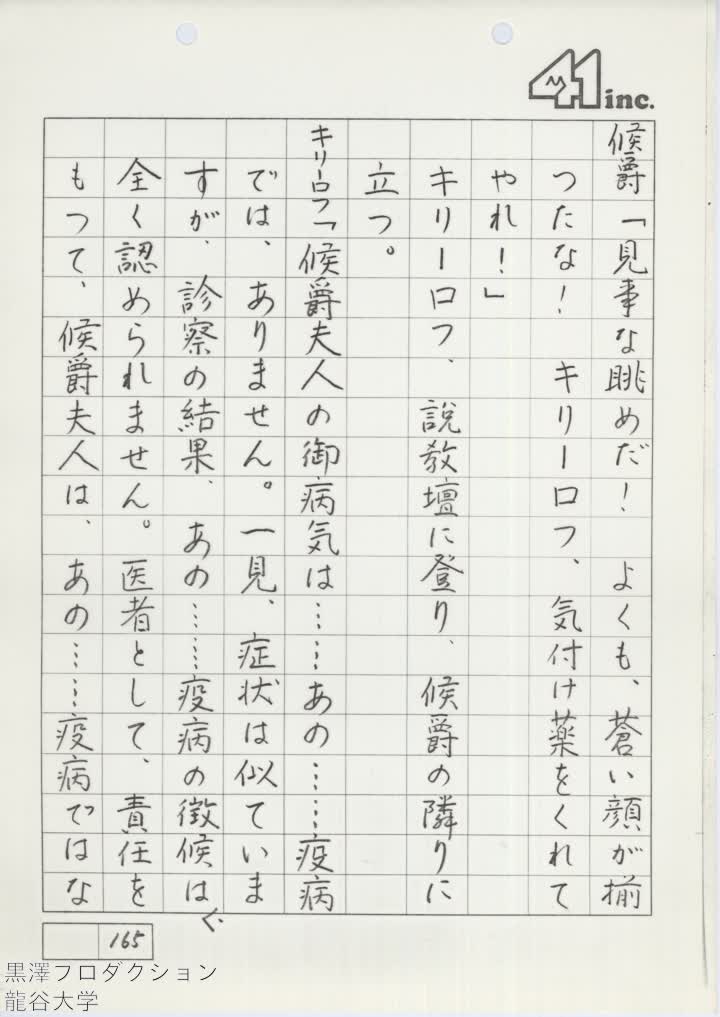 41 inc.
候爵「見事な眺めだ! よくも、蒼い顔が揃
つたな! キリーロフ、気付け薬をくれて
やれ!」
キリーロフ、説教壇に登り、候爵の隣りに
立つ。
キリーロフ「候爵夫人の御病気は……あの……疫病
では、ありません。一見、症状は似ていま
すが、診察の結果、あの……疫病の徴候は
全く認められません。医者として、責任を
もつて、候爵夫人は、あの……疫病ではな
165
黒澤プロダクション
龍谷大学